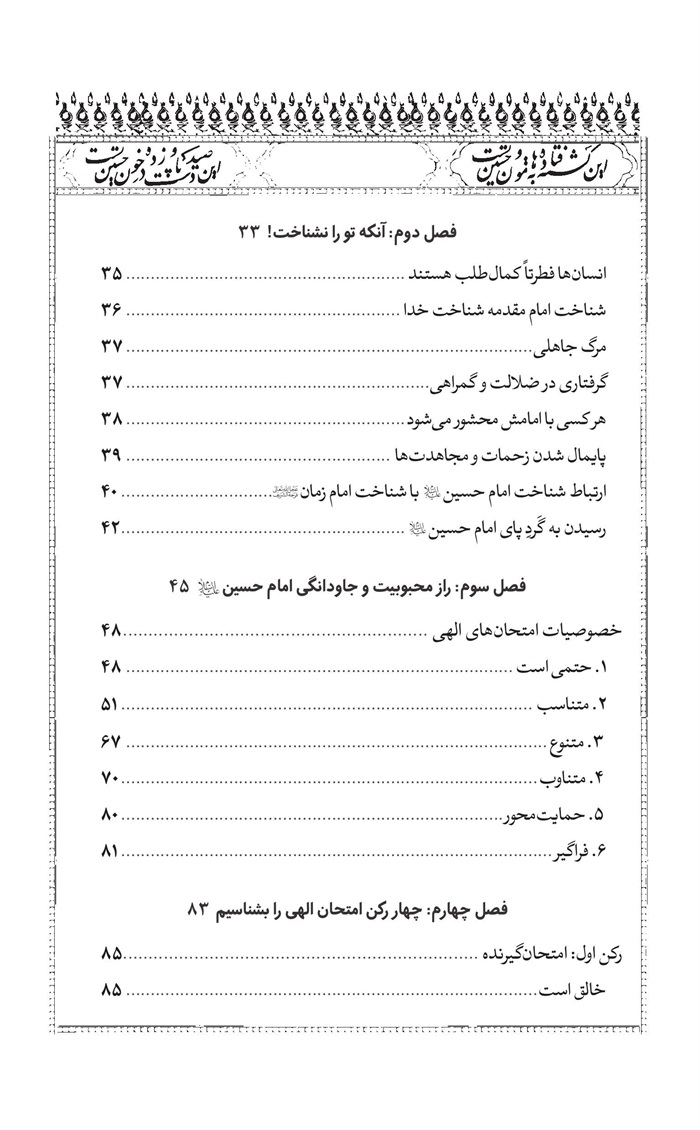 این کشته فتاده به هامون حسین توست
این صید دست و پا زده در خون حسین توست
فصل دوم: آنکه تو را نشناخت! ۳۳
انسان‌ها فطرتاً کمال‌طلب هستند ........ ۳۵
شناخت امام مقدمه شناخت خدا ........ ۳۶
مرگ جاهلی ........ ۳۷
گرفتاری در ضلالت و گمراهی ........ ۳۷
هرکسی با امامش محشور می‌شود ........ ۳۸
پایمال شدن زحمات و مجاهدت‌ها ........ ۳۹
ارتباط شناخت امام حسین با شناخت امام زمان ........ ۴۰
رسیدن به گَردِ پای امام حسین ........ ۴۲
فصل سوم: راز محبوبیت و جاودانگی امام حسین ۴۵
خصوصیات امتحان‌های الهی ........ ۴۸
۱. حتمی است ........ ۴۸
۲. متناسب ........ ۵۱
۳. متنوع ........ ۶۷
۴. متناوب ........ ۷۰
۵. حمایت‌محور ........ ۸۰
۶. فراگیر ........ ۸۱
فصل چهارم: چهار رکن امتحان الهی را بشناسیم ۸۳
رکن اول: امتحان‌گیرنده ........ ۸۵
خالق است ........ ۸۵